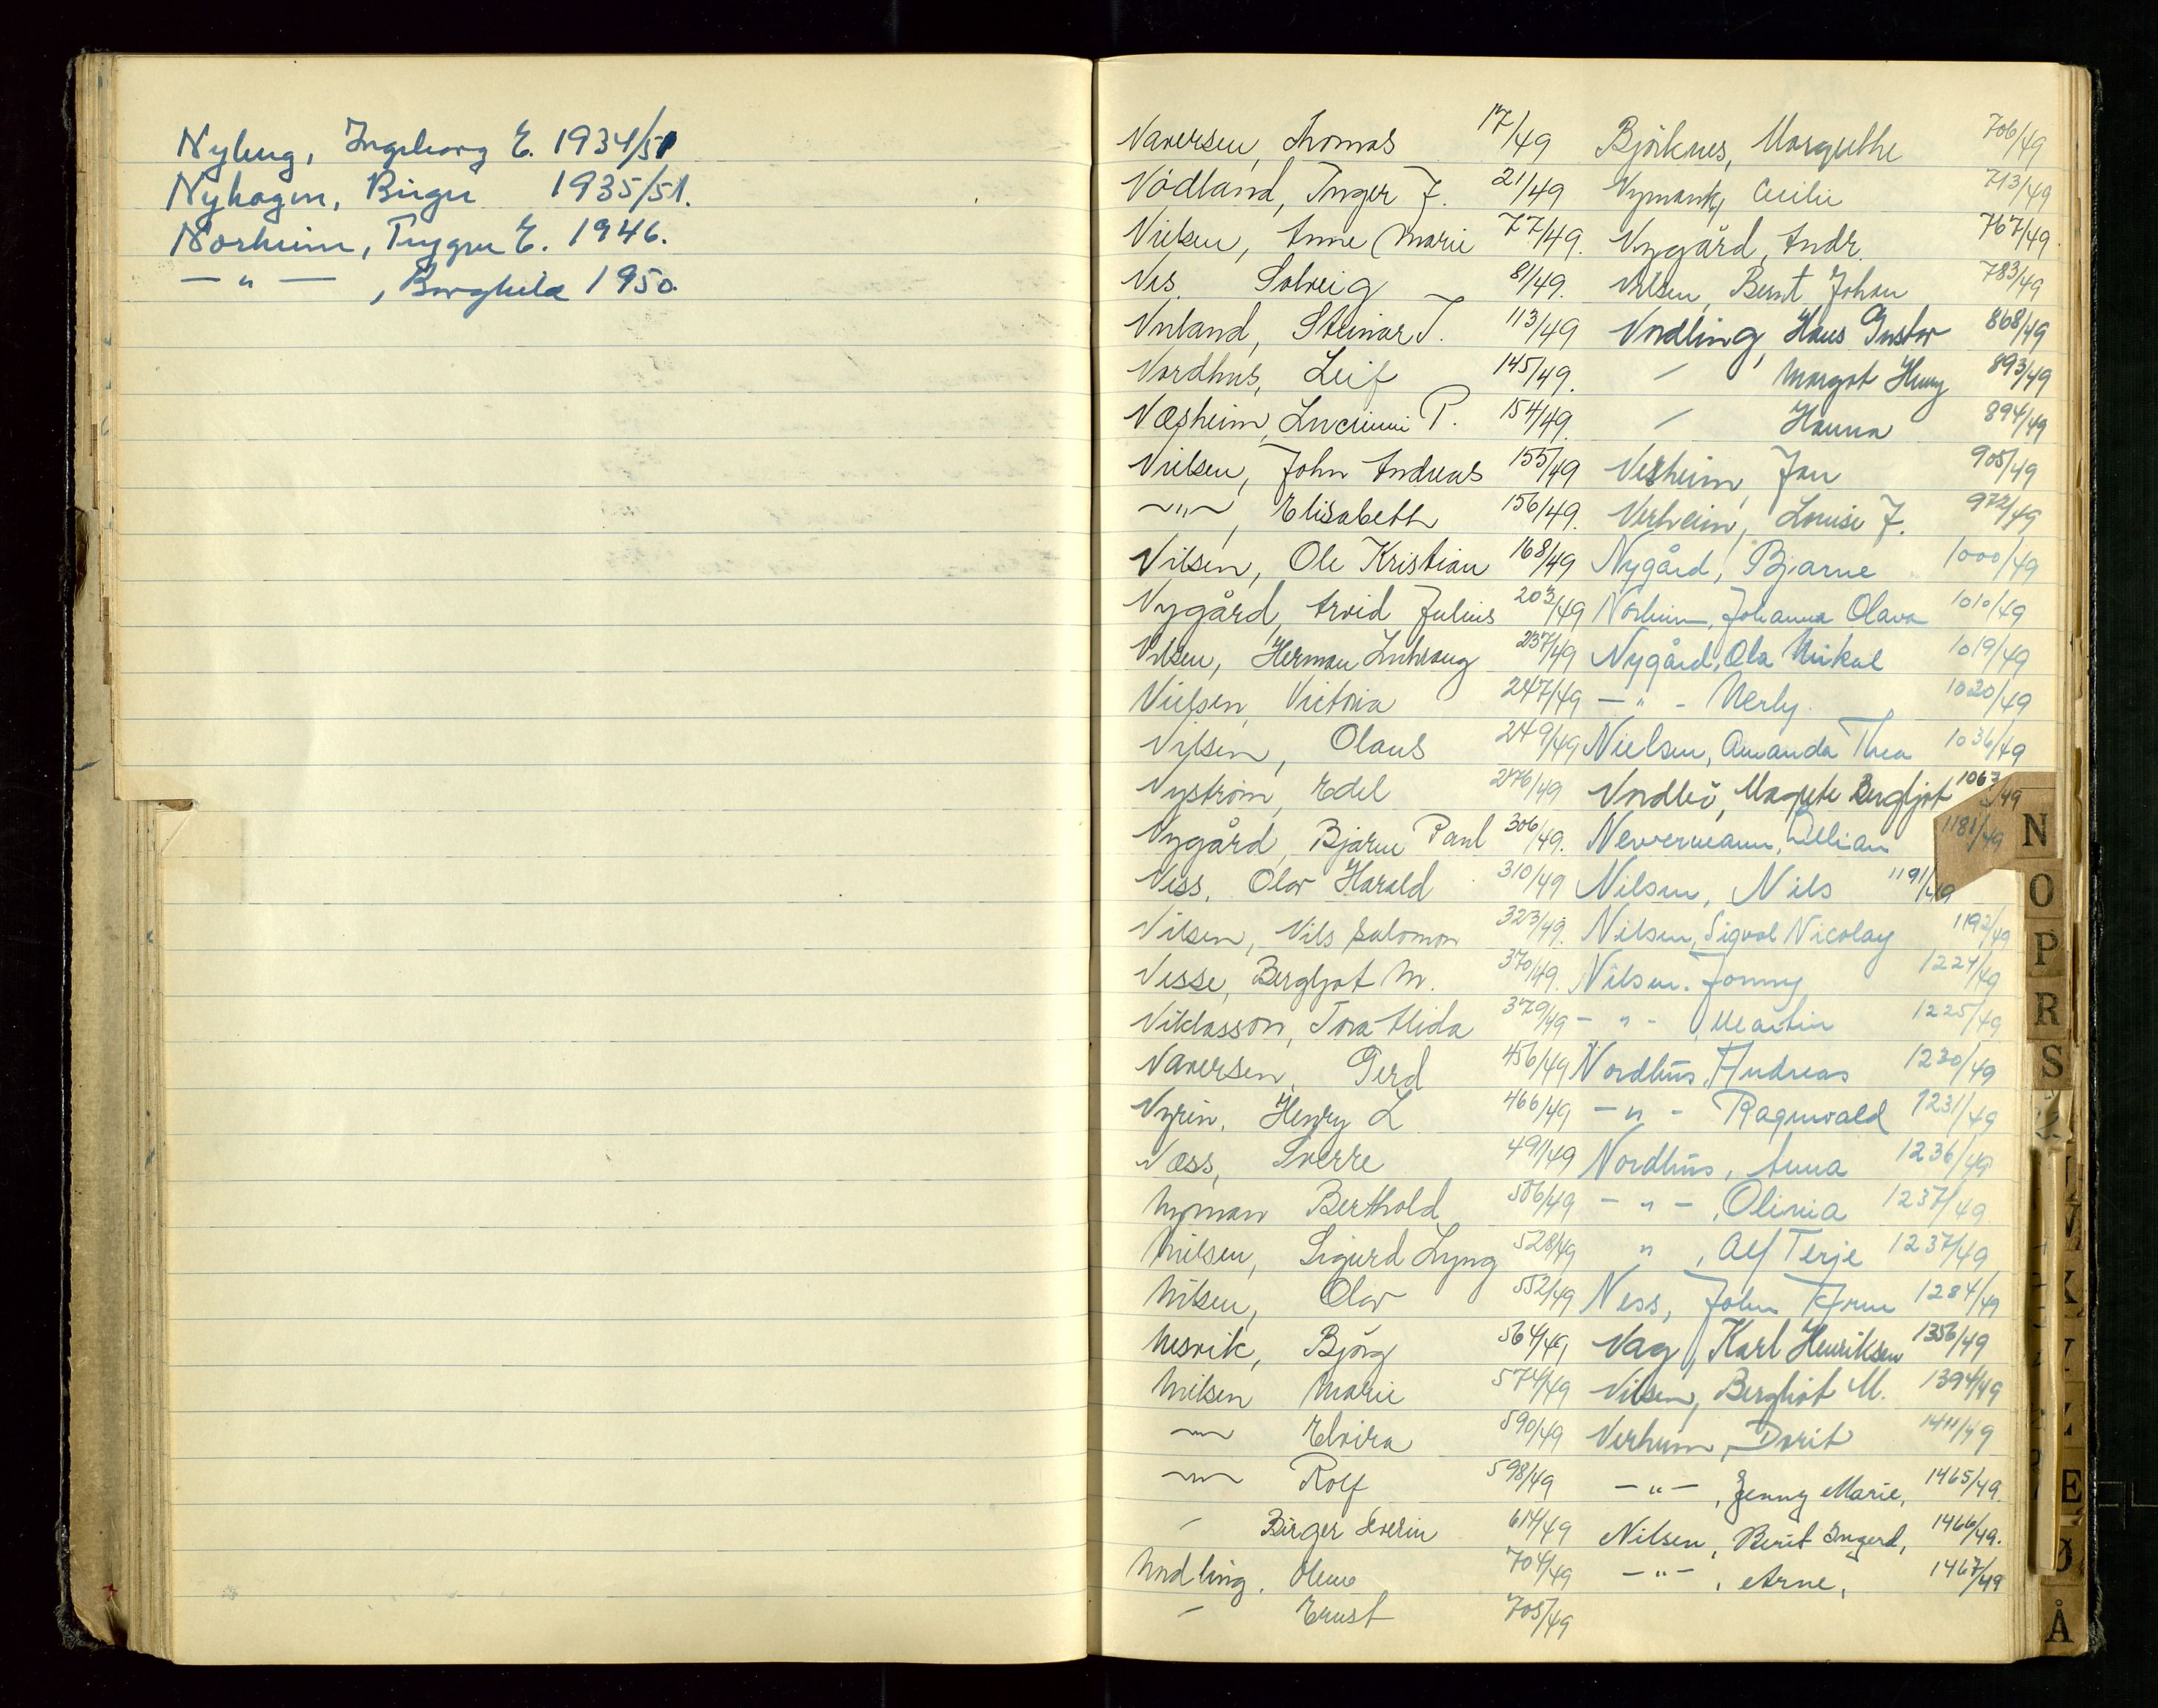 Nyberg, Ingeborg E. 1934/51
Nyhagen, Birger 1935/51.
Norheim, Trygve E. 1946.
— " — , Borghild 1950.
Naversen, Thomas 17/49
Nödland, Inger J. 21/49
Nielsen, Anne Marie 77/49.
Nes Solveig 81/49.
Norland, Steinar T. 113/49
Nordhus, Leif 145/49.
Næsheim, P. 154/49.
Nielsen, John Andreas 155/49
~"~, Elisabeth 156/49.
Nilsen, Ole Kristian 168/49
Nygård, Arvid Julius 203/49
Nilsen, Herman 237/49
Nielsen, Victoria 247/49
Nilsen, Olaus 249/49
Nyström, Edel 276/49
Nygård, Bjarne Paul 306/49.
Ness, Olav Harald 310/49
Nilsen, Nils Salomon 323/49.
Nesse, Bergljot M. 370/49.
Niklasson, Tora Alida 379/49
Naversen, Gerd 456/49
Nyrén, Henry L 466/49
Næss, Sverre 491/49
Nyman Berthold 506/49
Nilsen, Sigurd Lyng 528/49
Nilsen, Olav 552/49
Nesvik, Björg 564/49
Nilsen Marie 574/49
~ Elvira 590/49
~ Rolf 598/49
- Birger Severin 614/49
Nordling, 704/49
- Ernst 705/49
Björknes, Margrethe 706/49
Nymark, Cecilie 713/49
Nygård, Andr. 767/49.
Nilsen, Bernt Johan 783/49
Nordling, Hans Gustav 868/49
- Margot 893/49
- Hanna 894/49
Nesheim, Jan 905/49
Nerheim, Louise J. 972/49
Nygård, Bjarne 1000/49
Norheim, Johanna Olava 1010/49
Nygård, Ola Mikal 1019/49
— " - Nerly. 1020/49
Nielsen, Amanda Thea 1036/49
Nordbö, Magrete Bergljot 1067/49
Nevermann, Lillian 1181/49
Nilsen, Nils 1191/49
Nilsen, Sigval Nicolay 1192/49
Nilsen. Jonny 1224/49
— " - , Martin 1225/49
Nordhus, Andreas 1230/49
— " - Ragnvald 1231/49
Nordhus, Anna 1236/49
— " — , Olivia 1237/49
" , Alf Terje 1237/49
Ness, John Arne 1284/49
Nag, Karl Henriksen 1356/49
Nilsen, Bergliot M. 1394/49
Nerheim, Dorit 1411/49
— " — , Jenny Marie, 1465/49.
Nilsen, Berit Ingerd, 1466/49.
— " — , Arne, 1467/49
N
O
P
R
S
E
Ø
Å